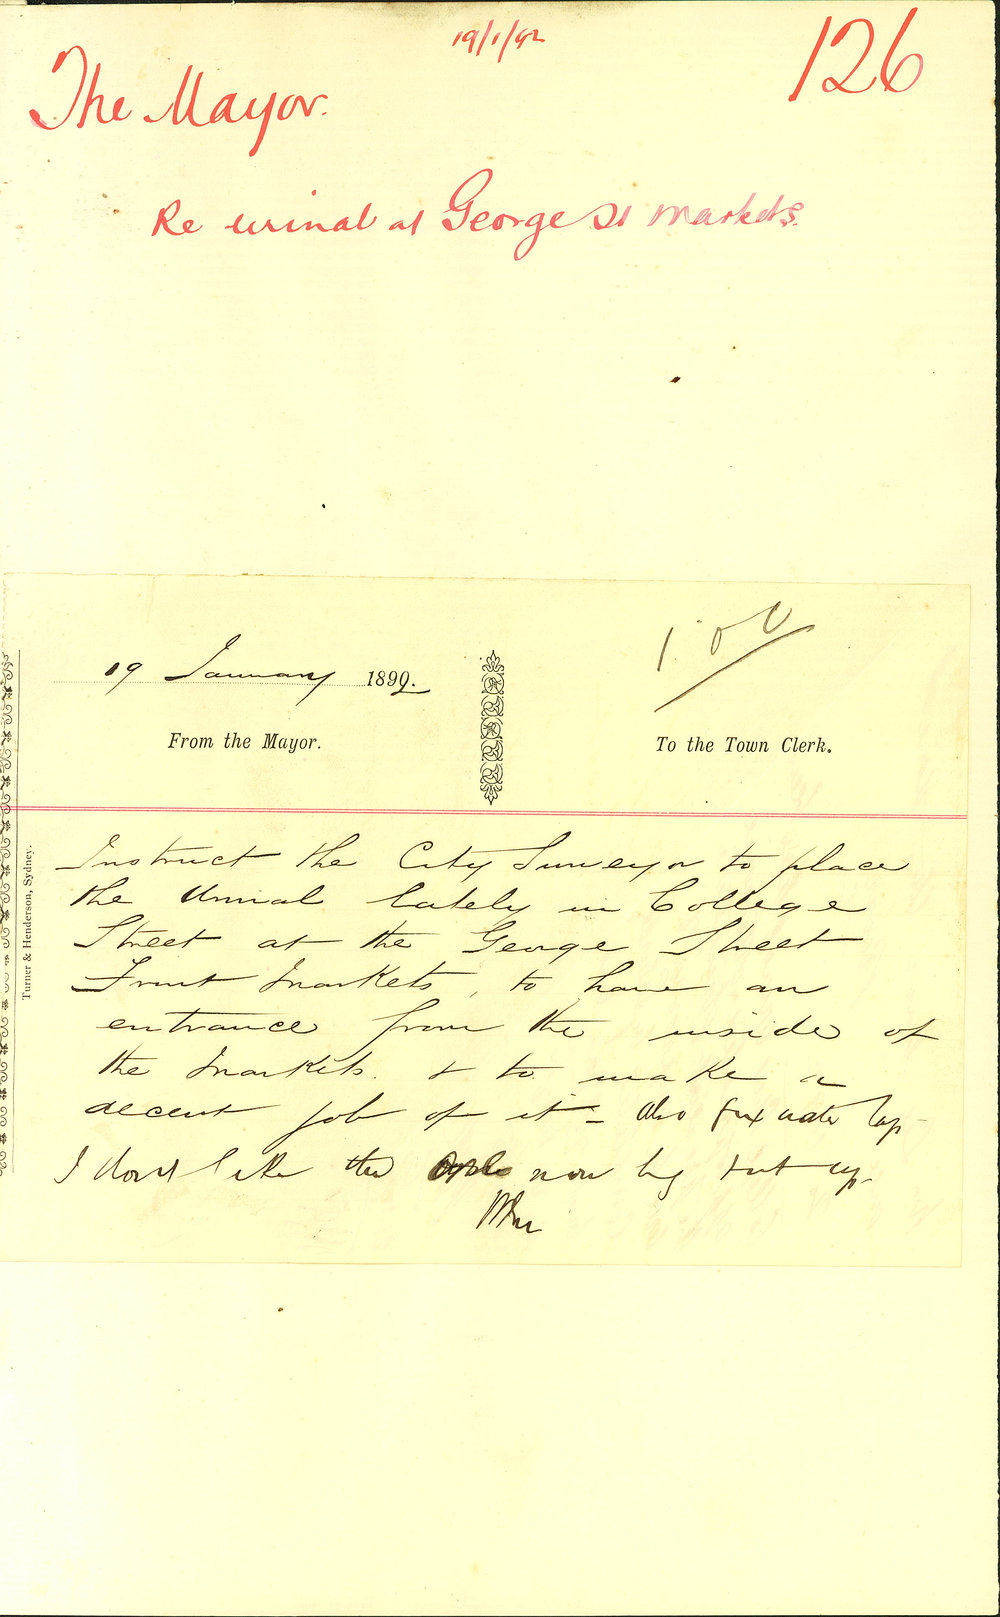 19/1/92
126
The Mayor.
Re urinal at George St Markets.
19 January 1892.
From the Mayor.
To the Town Clerk.
Turner & Henderson, Sydney.
Instruct the City Surveyor to place
the Urinal lately in College
Street at the George Street
Fruit Markets, to have an
entrance from the inside of
the Markets. & to make a
decent job of it = also fix water tap
I dont like the now being put up.